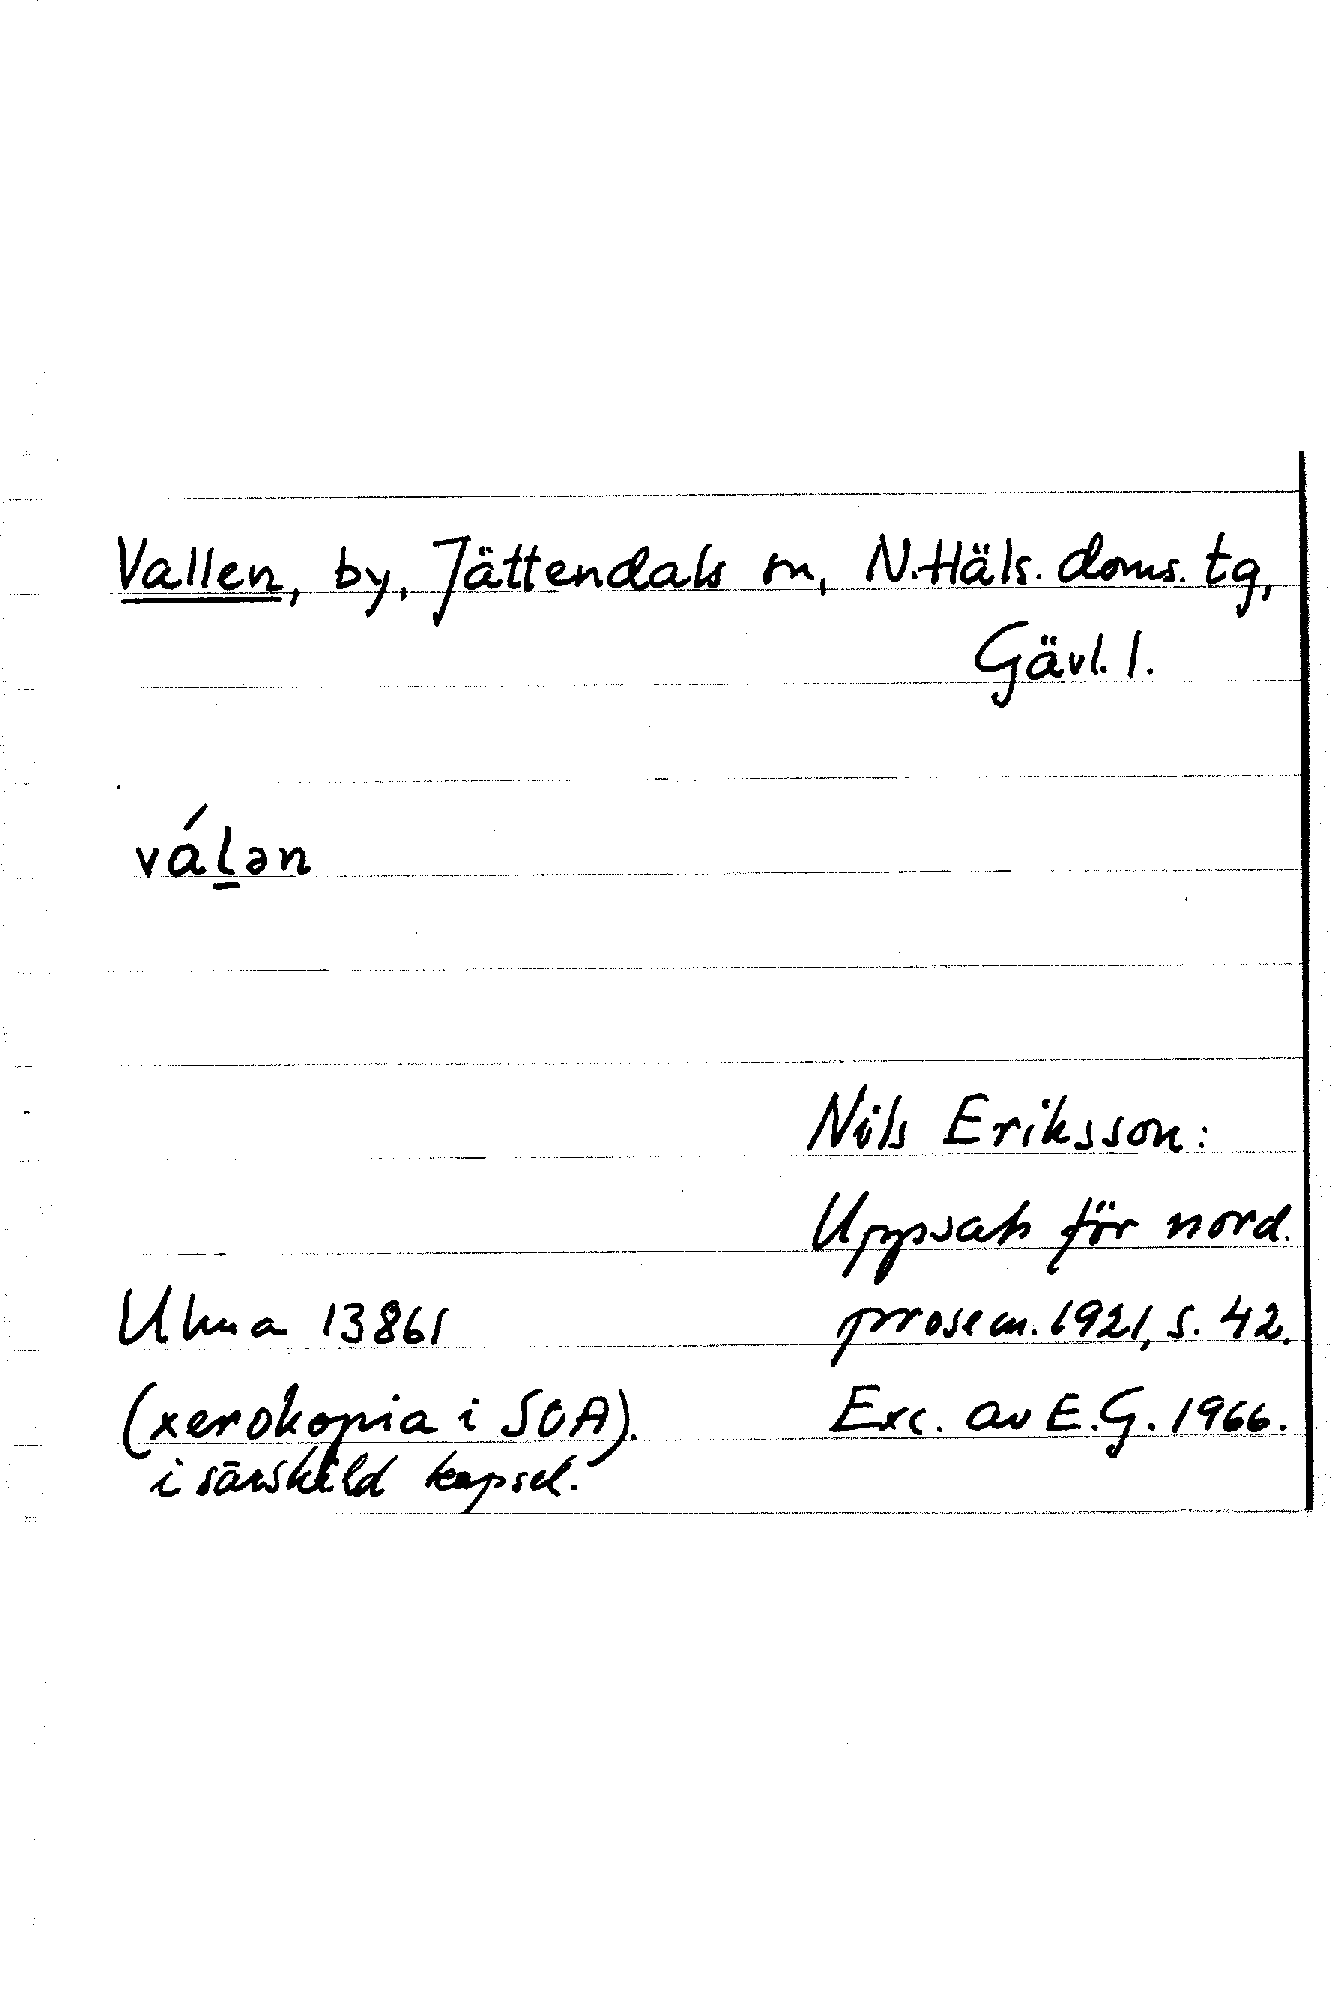 Vallen, by, Jättendals sn, N. Häls. doms. tg,
Gävl. l.
válən
Nils Eriksson:
Uppsats för nord.
Ulma 13861 prosem. 1921, s. 42.
(xerokopia i SOA). Exc. av E.G. 1966.
i särskild kapsel.